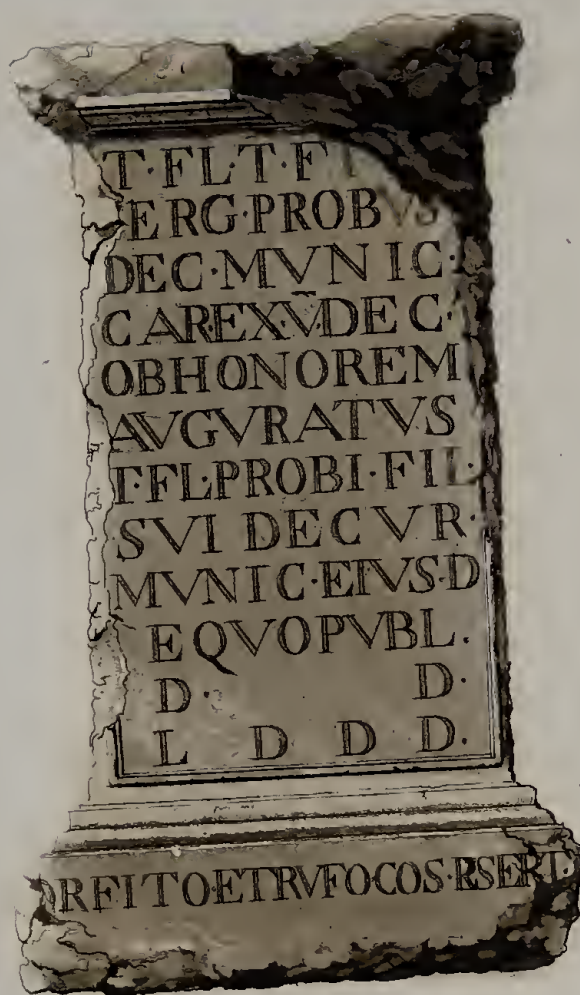 T·FL·T·F
SERG·PROBVS
DEC·MVNIC·
CAR·EX·V·DEC·
OB HONOREM
AVGVRATVS
T·FL·PROBI·FIL·
SVI DECVR·
MVNIC·EIVS·D
EQVO PVBL.
D· D·
L D D D.
ORFITO·ET RVFO·COS·